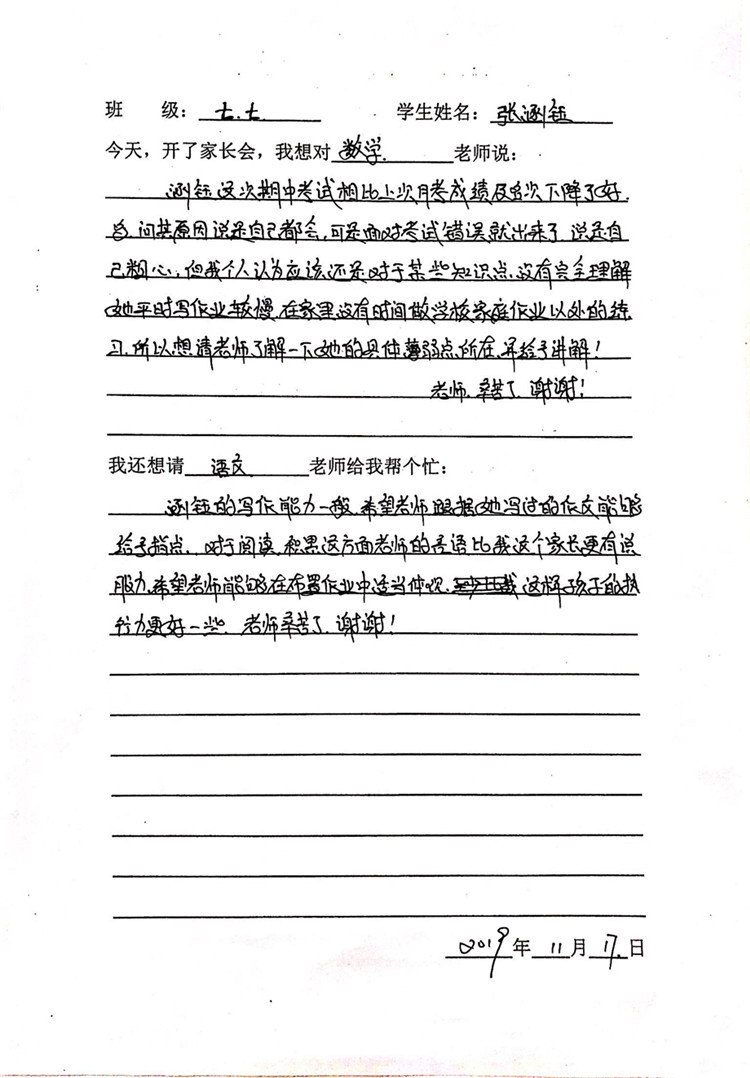 班 级：七.七 学生姓名：张涵钰
今天，开了家长会，我想对 数学 老师说：
涵钰这次期中考试相比上次月考成绩及名次下降了好
多.问其原因说是自己都会,可是面对考试错误就出来了.说是自
己粗心,但我个人认为应该还是对于某些知识点.没有完全理解
她平时写作业较慢.在家里没有时间做学校家庭作业以外的练
习.所以想请老师了解一下她的具体薄弱点所在,并给予讲解!
老师.辛苦了.谢谢!
我还想请 语文 老师给我帮个忙：
涵钰的写作能力一般.希望老师跟据她写过的作文能够
给予指点.对于阅读.积累这方面老师的话语比我这个家长更有说
服力.希望老师能够在布置作业中适当体现.这样孩子的执
行力更好一些.老师辛苦了.谢谢!
2019年11月17.日